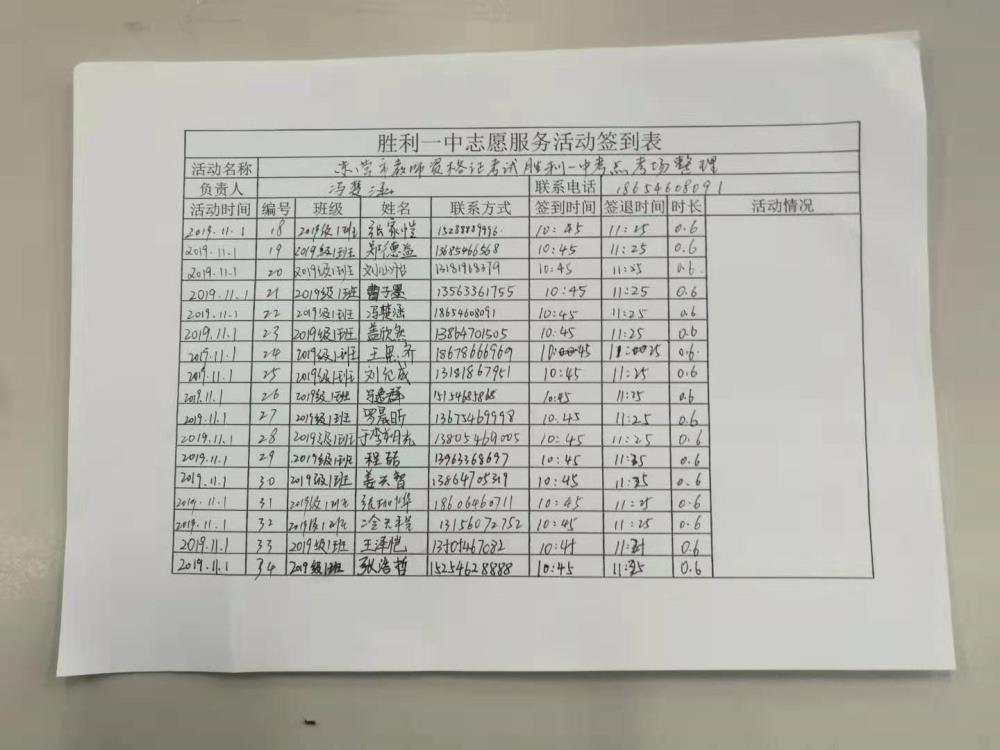 胜利一中志愿服务活动签到表
活动名称 东营市教师资格证考试胜利一中考点考场整理
负责人 冯楚涵 联系电话 18654608091
活动时间 编号 班级 姓名 联系方式 签到时间 签退时间 时长 活动情况
2019.11.1 18 2019级1班 张家恺 15288889996 10:45 11:25 0.6
2019.11.1 19 2019级1班 郑德益 10:45 11:25 0.6
2019.11.1 20 2019级1班 10:45 11:25 0.6
2019.11.1 21 2019级1班 曹子墨 13563361755 10:45 11:25 0.6
2019.11.1 22 2019级1班 冯楚涵 18654608091 10:45 11:25 0.6
2019.11.1 23 2019级1班 盖欣然 13864701505 10:45 11:25 0.6
2019.11.1 24 2019级1班 18678666969 10:45 11:25 0.6
2019.11.1 25 2019级1班 刘纪成 13181867951 10:45 11:25 0.6
2019.11.1 26 2019级1班 15154685868 10:45 11:25 0.6
2019.11.1 27 2019级1班 罗晨昕 13675469998 10:45 11:25 0.6
2019.11.1 28 2019级1班 13805469005 10:45 11:25 0.6
2019.11.1 29 2019级1班 程喆 13963368697 10:45 11:25 0.6
2019.11.1 30 2019级1班 姜天智 13864705319 10:45 11:25 0.6
2019.11.1 31 2019级1班 18606460711 10:45 11:25 0.6
2019.11.1 32 2019级1班 13156072752 10:45 11:25 0.6
2019.11.1 33 2019级1班 王泽恺 10:45 11:25 0.6
2019.11.1 34 2019级1班 张浩哲 15254628888 10:45 11:25 0.6